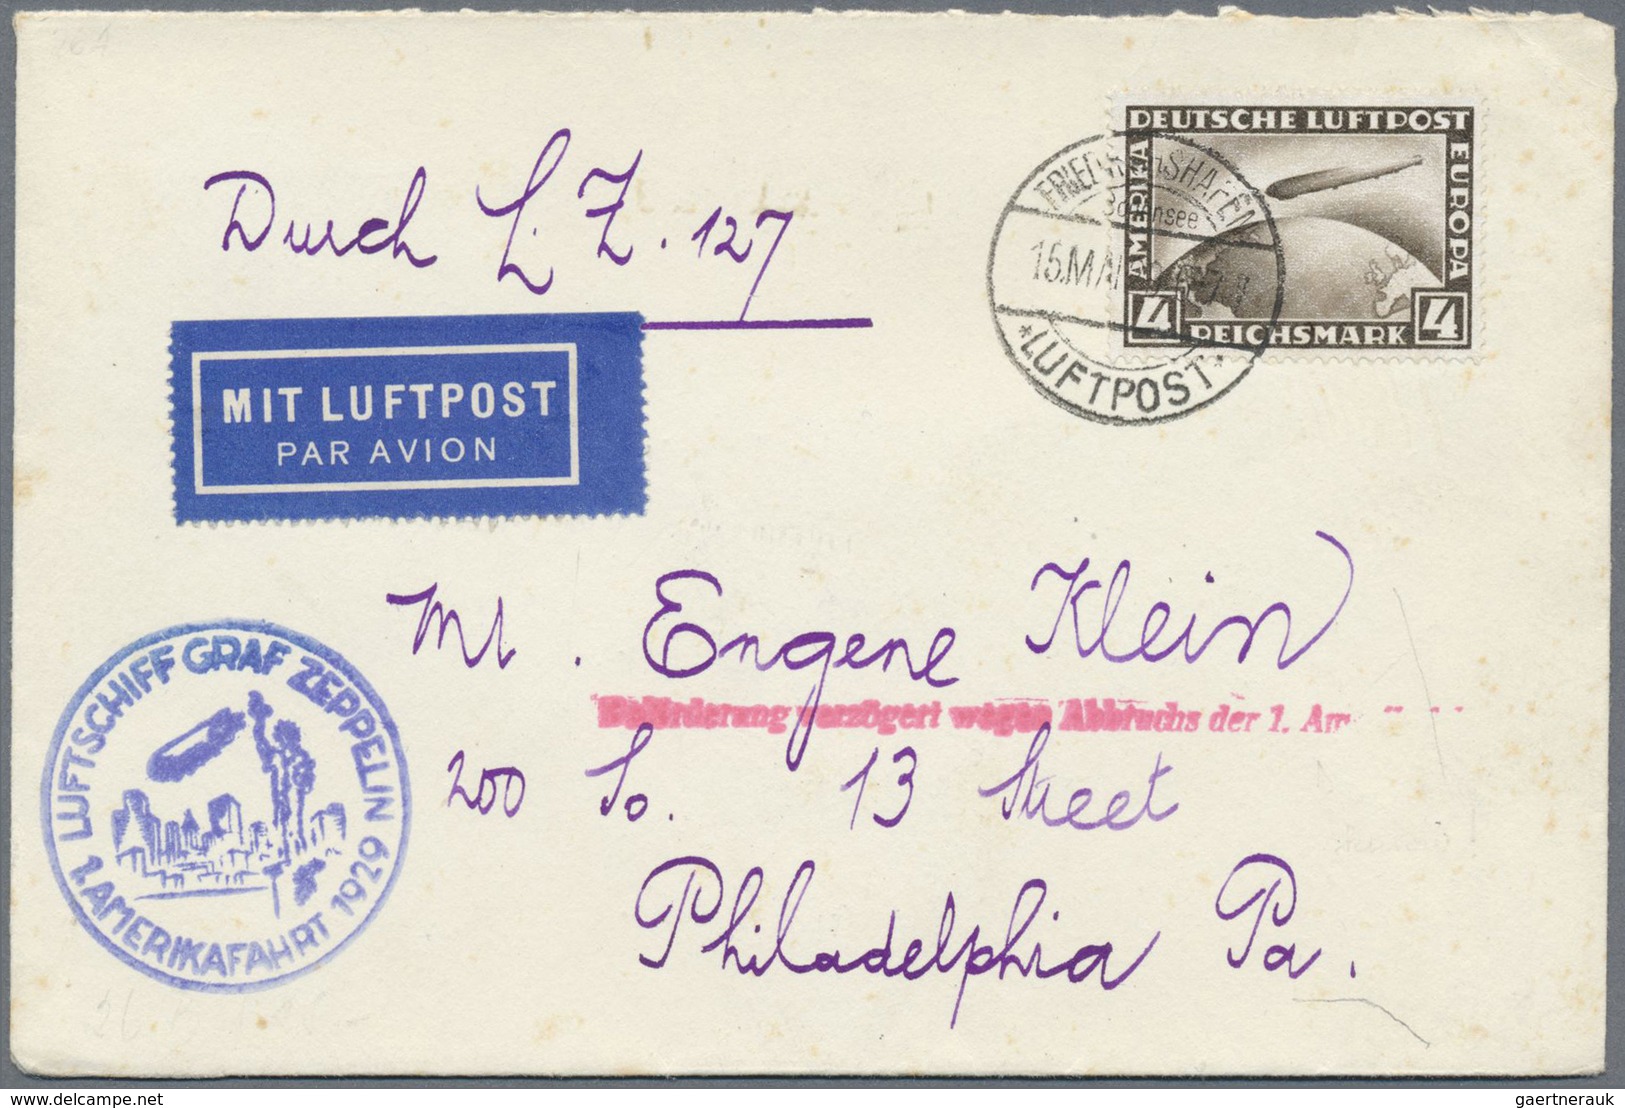 DEUTSCHE LUFTPOST
AMERIKA
EUROPA
4 REICHSMARK 4
FRIEDRICHSHAFEN
Bodensee
15.MAI
*LUFTPOST*
Durch L.Z. 127
MIT LUFTPOST
PAR AVION
Mr. Eugene Klein
Beförderung verzögert wegen Abbruchs der 1. Am
200 So. 13 Street
Philadelphia Pa.
LUFTSCHIFF GRAF ZEPPELIN
1. AMERIKAFAHRT 1929
www.delcampe.net
gaertnerauk